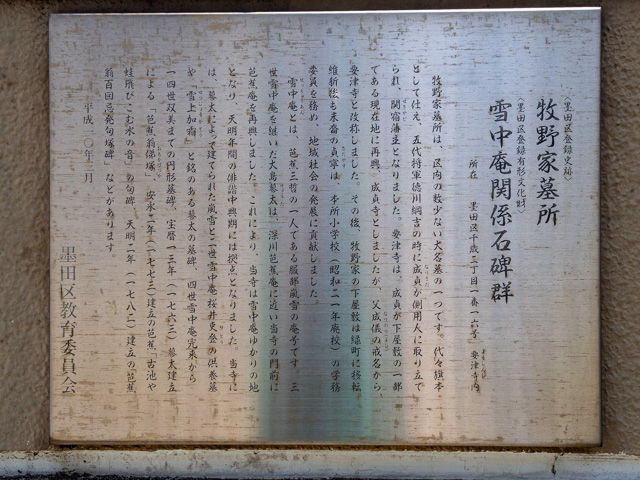 （墨田区登録史跡）
牧野家墓所
（墨田区登録有形文化財）
雪中庵関係石碑群
所在 墨田区千歳二丁目一番一六号 要津寺内
牧野家墓所は、区内の数少ない大名墓の一つです。代々旗本
として仕え、五代将軍徳川綱吉の時に成貞が側用人に取り立て
られ、関宿藩主となりました。要津寺は、成貞が下屋敷の一部
である現在地に再興、成貞寺としましたが、父成儀の戒名から、
要津寺と改称しました。その後、牧野家の下屋敷は緑町に移転、
維新後も末裔の貞寧は、本所小学校（昭和二一年廃校）の学務
委員を務め、地域社会の発展に貢献しました。
雪中庵とは、芭蕉三哲の一人である服部嵐雪の庵号です。三
世雪中庵を継いだ大島蓼太は、深川芭蕉庵に近い当寺の門前に
芭蕉庵を再興しました。これにより、当寺は雪中庵ゆかりの地
となり、天明年間の俳諧中興期には拠点となりました。当寺に
は、蓼太によって建てられた嵐雪と二世雪中庵桜井吏登の供養墓
や「雪上加霜」と銘のある蓼太の墓碑、四世雪中庵完来から
一四世双美までの円形墓碑、宝暦一三年（一七六三）蓼太建立
による「芭蕉翁俤塚」、安永二年（一七七三）建立の芭蕉「古池や
蛙飛びこむ水の音」の句碑、天明二年（一七八二）建立の「芭蕉
翁百回忌発句塚碑」などがあります。
平成一〇年三月
墨田区教育委員会